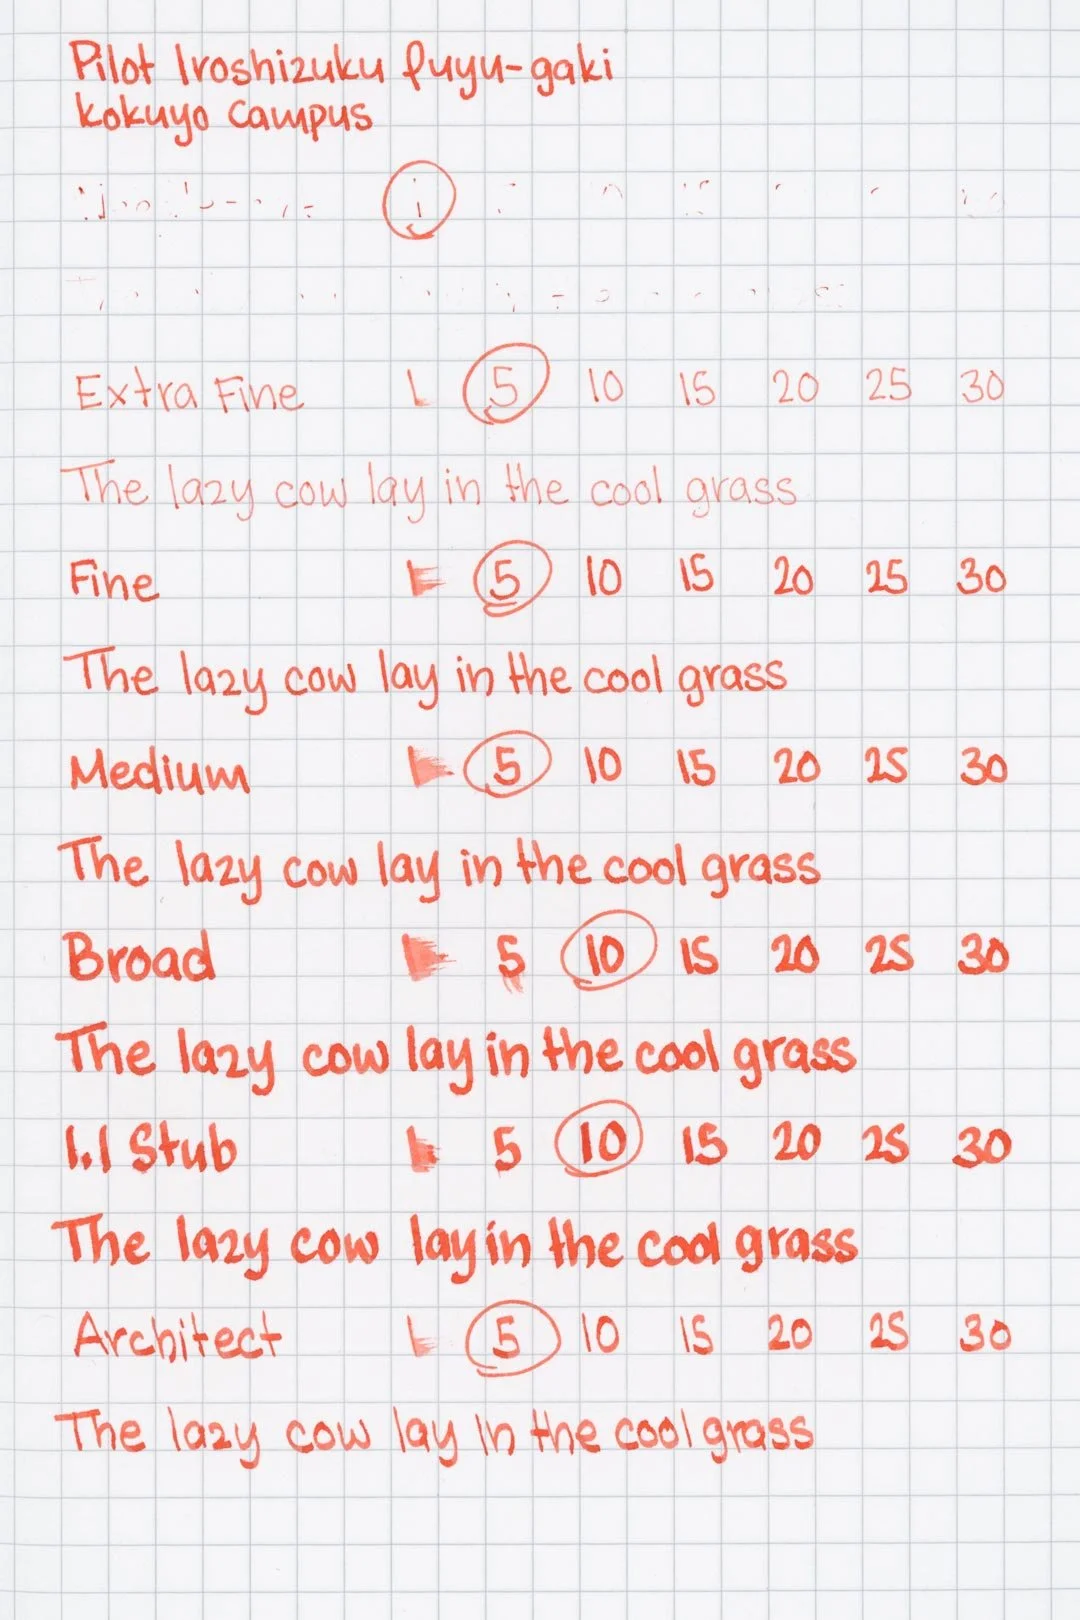 Pilot Iroshizuku fuyu-gaki
Kokuyo Campus
Extra Fine 1 5 10 15 20 25 30
The lazy cow lay in the cool grass
Fine 1 5 10 15 20 25 30
The lazy cow lay in the cool grass
Medium 1 5 10 15 20 25 30
The lazy cow lay in the cool grass
Broad 1 5 10 15 20 25 30
The lazy cow lay in the cool grass
1.1 Stub 1 5 10 15 20 25 30
The lazy cow lay in the cool grass
Architect 1 5 10 15 20 25 30
The lazy cow lay in the cool grass